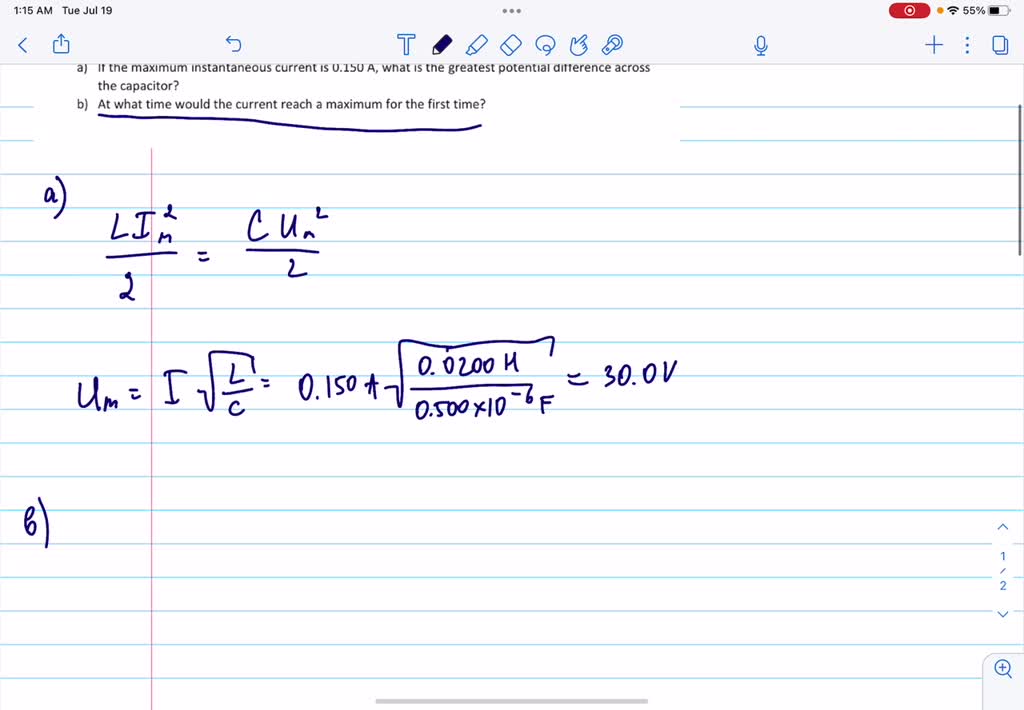 1:15 AM Tue Jul 19
55%
a) If the maximum instantaneous current is 0.150 A, what is the greatest potential difference across
the capacitor?
b) At what time would the current reach a maximum for the first time?
a)
LIₘ²/2 = CUₘ²/2
Uₘ = I √(L/C) = 0.150 A √(0.0200 H / 0.500×10⁻⁶ F) = 30.0V
в)
1
/
2